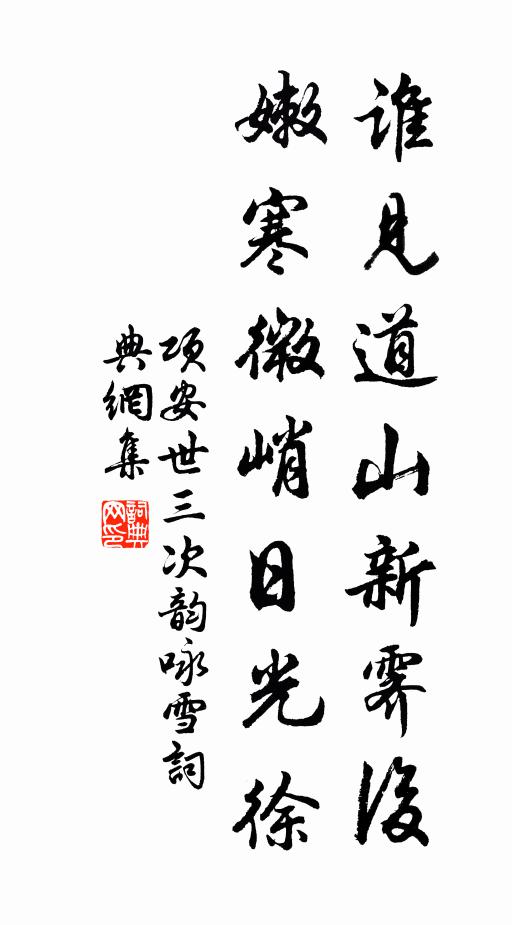 誰見道山新霽後
嫩寒微峭日光徐
項安世三次韵咏雪詞
典網集
詞典网印